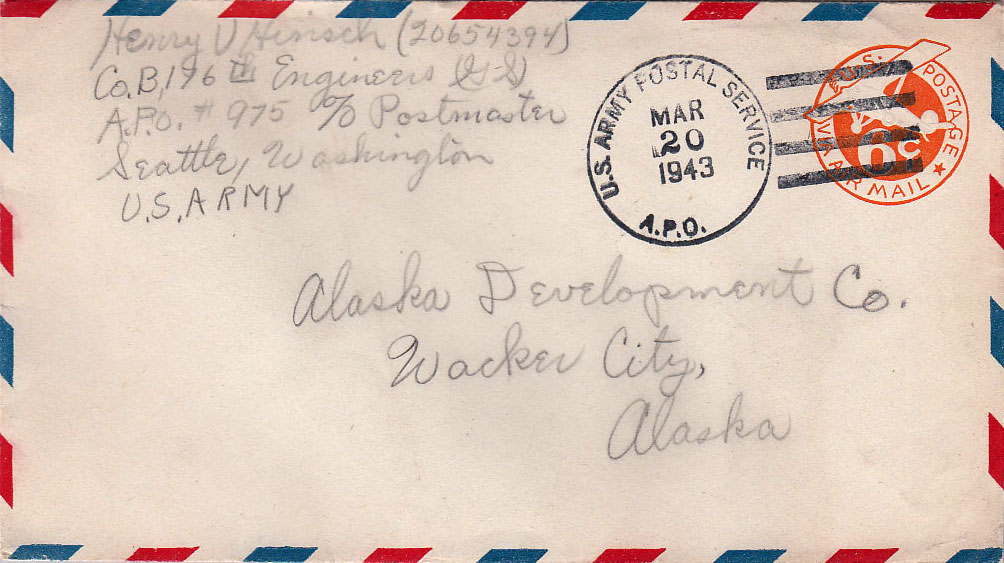 Henry V Hinsch (20654394)
Co.B, 176th Engineers (G-S)
A.P.O. # 975 c/o Postmaster
Seattle, Washington
U.S. ARMY
U.S. ARMY POSTAL SERVICE
MAR
20
1943
A.P.O.
U.S. POSTAGE
6¢
VIA AIR MAIL
Alaska Development Co.
Wacker City,
Alaska